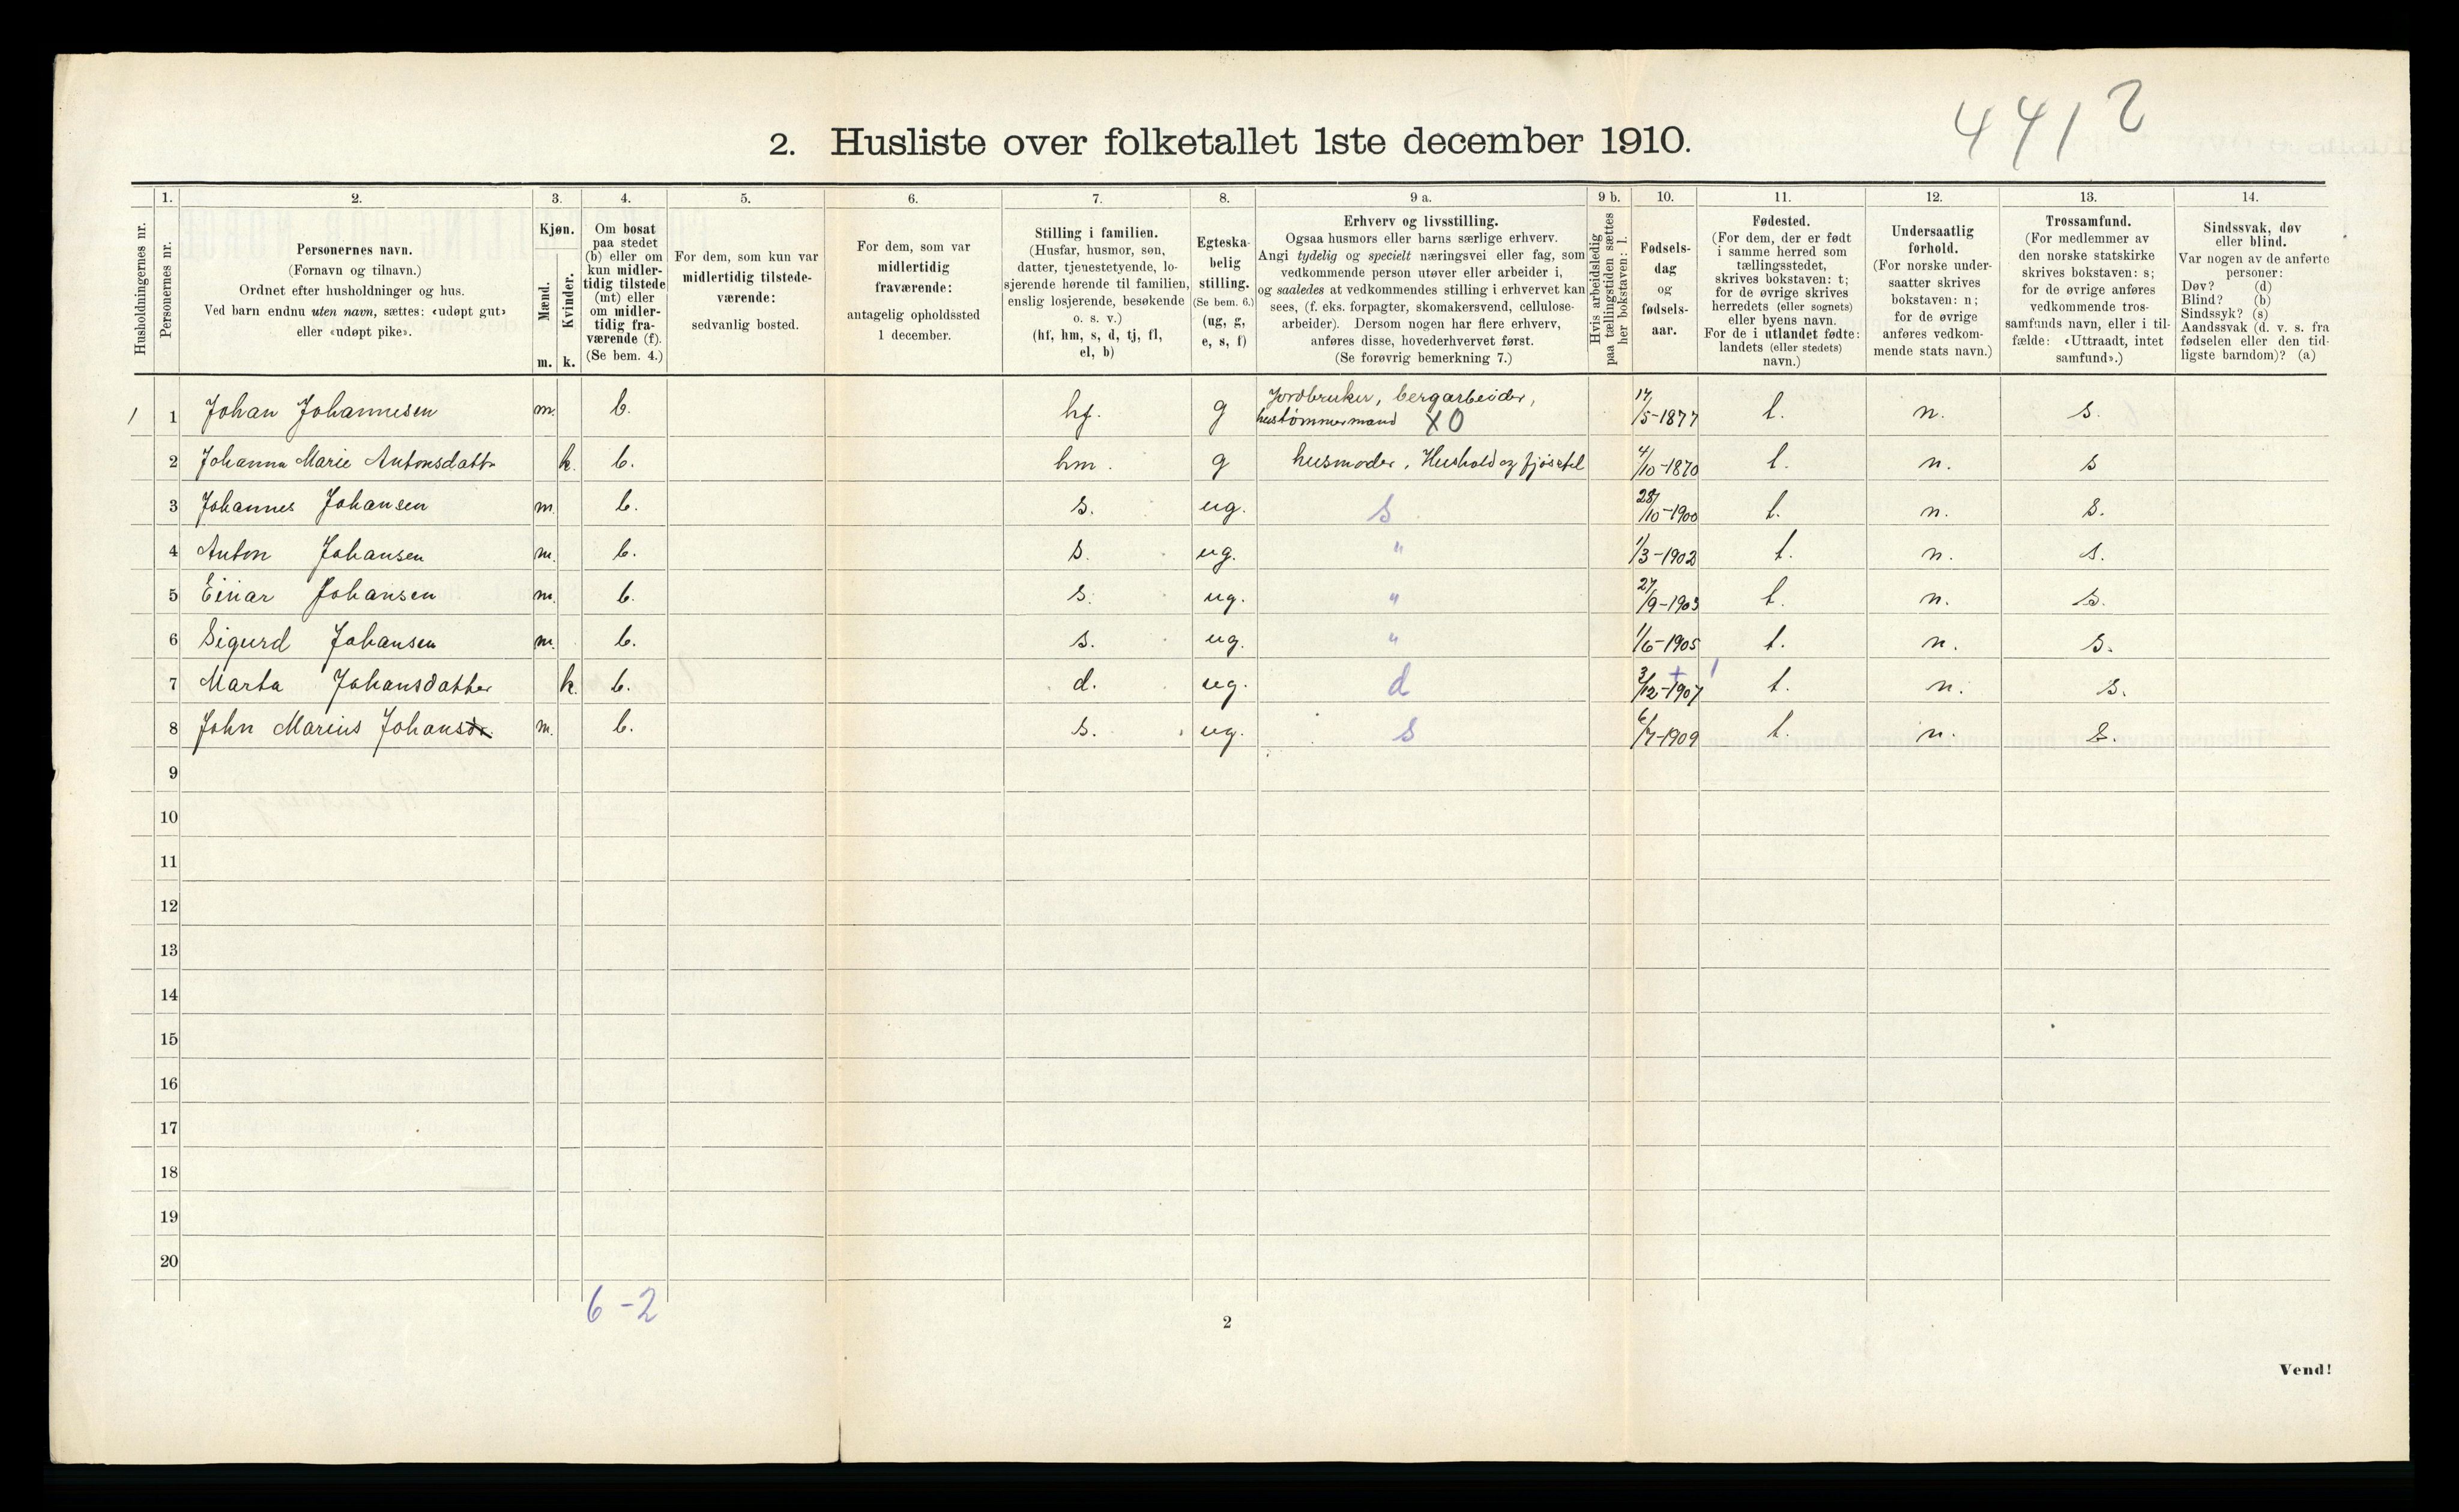 4412
2. Husliste over folketallet 1ste december 1910.
Husholdningernes nr.
1.
Personernes nr.
2.
Personernes navn.
(Fornavn og tilnavn.)
Ordnet efter husholdninger og hus.
Ved barn endnu uten navn, sættes: «udøpt gut»
eller «udøpt pike».
3.
Kjøn.
Mænd.
Kvinder.
m. k.
4.
Om bosat
paa stedet
(b) eller om
kun midler-
tidig tilstede
(mt) eller
om midler-
tidig fra-
værende (f).
(Se bem. 4.)
5.
For dem, som kun var
midlertidig tilstede-
værende:
sedvanlig bosted.
6.
For dem, som var
midlertidig
fraværende:
antagelig opholdssted
1 december.
7.
Stilling i familien.
(Husfar, husmor, søn,
datter, tjenestetyende, lo-
sjerende hørende til familien,
enslig losjerende, besøkende
o. s. v.)
(hf, hm, s, d, tj, fl,
el, b)
8.
Egteska-
belig
stilling.
(Se bem. 6.)
(ug, g,
e, s, f)
9 a.
Erhverv og livsstilling.
Ogsaa husmors eller barns særlige erhverv.
Angi tydelig og specielt næringsvei eller fag, som
vedkommende person utøver eller arbeider i,
og saaledes at vedkommendes stilling i erhvervet kan
sees, (f. eks. forpagter, skomakersvend, cellulose-
arbeider). Dersom nogen har flere erhverv,
anføres disse, hovederhvervet først.
(Se forøvrig bemerkning 7.)
9 b.
Hvis arbeidsledig
paa tællingstiden sættes
her bokstaven: l.
10.
Fødsels-
dag
og
fødsels-
aar.
11.
Fødested.
(For dem, der er født
i samme herred som
tællingsstedet,
skrives bokstaven: t;
for de øvrige skrives
herredets (eller sognets)
eller byens navn.
For de i utlandet fødte:
landets (eller stedets)
navn.)
12.
Undersaatlig
forhold.
(For norske under-
saatter skrives
bokstaven: n;
for de øvrige
anføres vedkom-
mende stats navn.)
13.
Trossamfund.
(For medlemmer av
den norske statskirke
skrives bokstaven: s;
for de øvrige anføres
vedkommende tros-
samfunds navn, eller i til-
fælde: «Uttraadt, intet
samfund».)
14.
Sindssvak, døv
eller blind.
Var nogen av de anførte
personer:
Døv? (d)
Blind? (b)
Sindssyk? (s)
Aandssvak (d. v. s. fra
fødselen eller den tid-
ligste barndom)? (a)
1 1 Johan Johannesen m. b. hf. g Jordbruker, bergarbeider, 17/5-1877 t. n. s.
hustømmermand XO
2 Johanna Marie Antonsdattr k. b. hm. g husmoder, Hushold og fjøsstel 4/10-1870 t. n. s
3 Johannes Johansen m. b. s. ug. s 28/10-1900 t. n. s.
4 Anton Johansen m. b. s. ug. " 1/3-1902 t. n. s.
5 Einar Johansen m. b. s. ug. " 27/9-1903 t. n. s.
6 Sigurd Johansen m. b. s. ug. " 1/6-1905 t. n. s.
7 Marta Johansdatter k. b. d. ug. d 3/12-1907 t. n. s.
8 John Marius Johans m. b. s. ug. s 6/7-1909 t. n. s.
9
10
11
12
13
14
15
16
17
18
19
20
6-2
2
Vend!